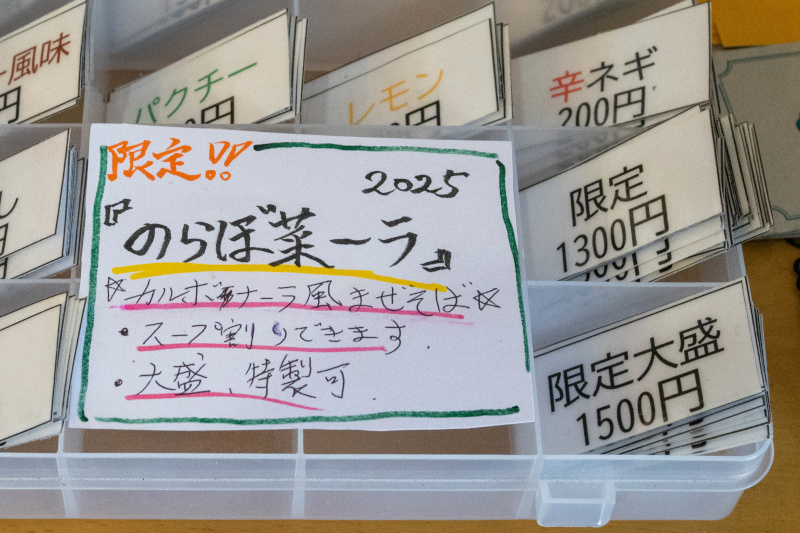 風味
円
パクチー
円
レモン
円
辛ネギ
200円
限定!!
2025
『のらぼ菜ーラ』
☆カルボナーラ風まぜそば☆
・スープ割りできます.
・大盛、特製可.
限定
1300円
限定大盛
1500円